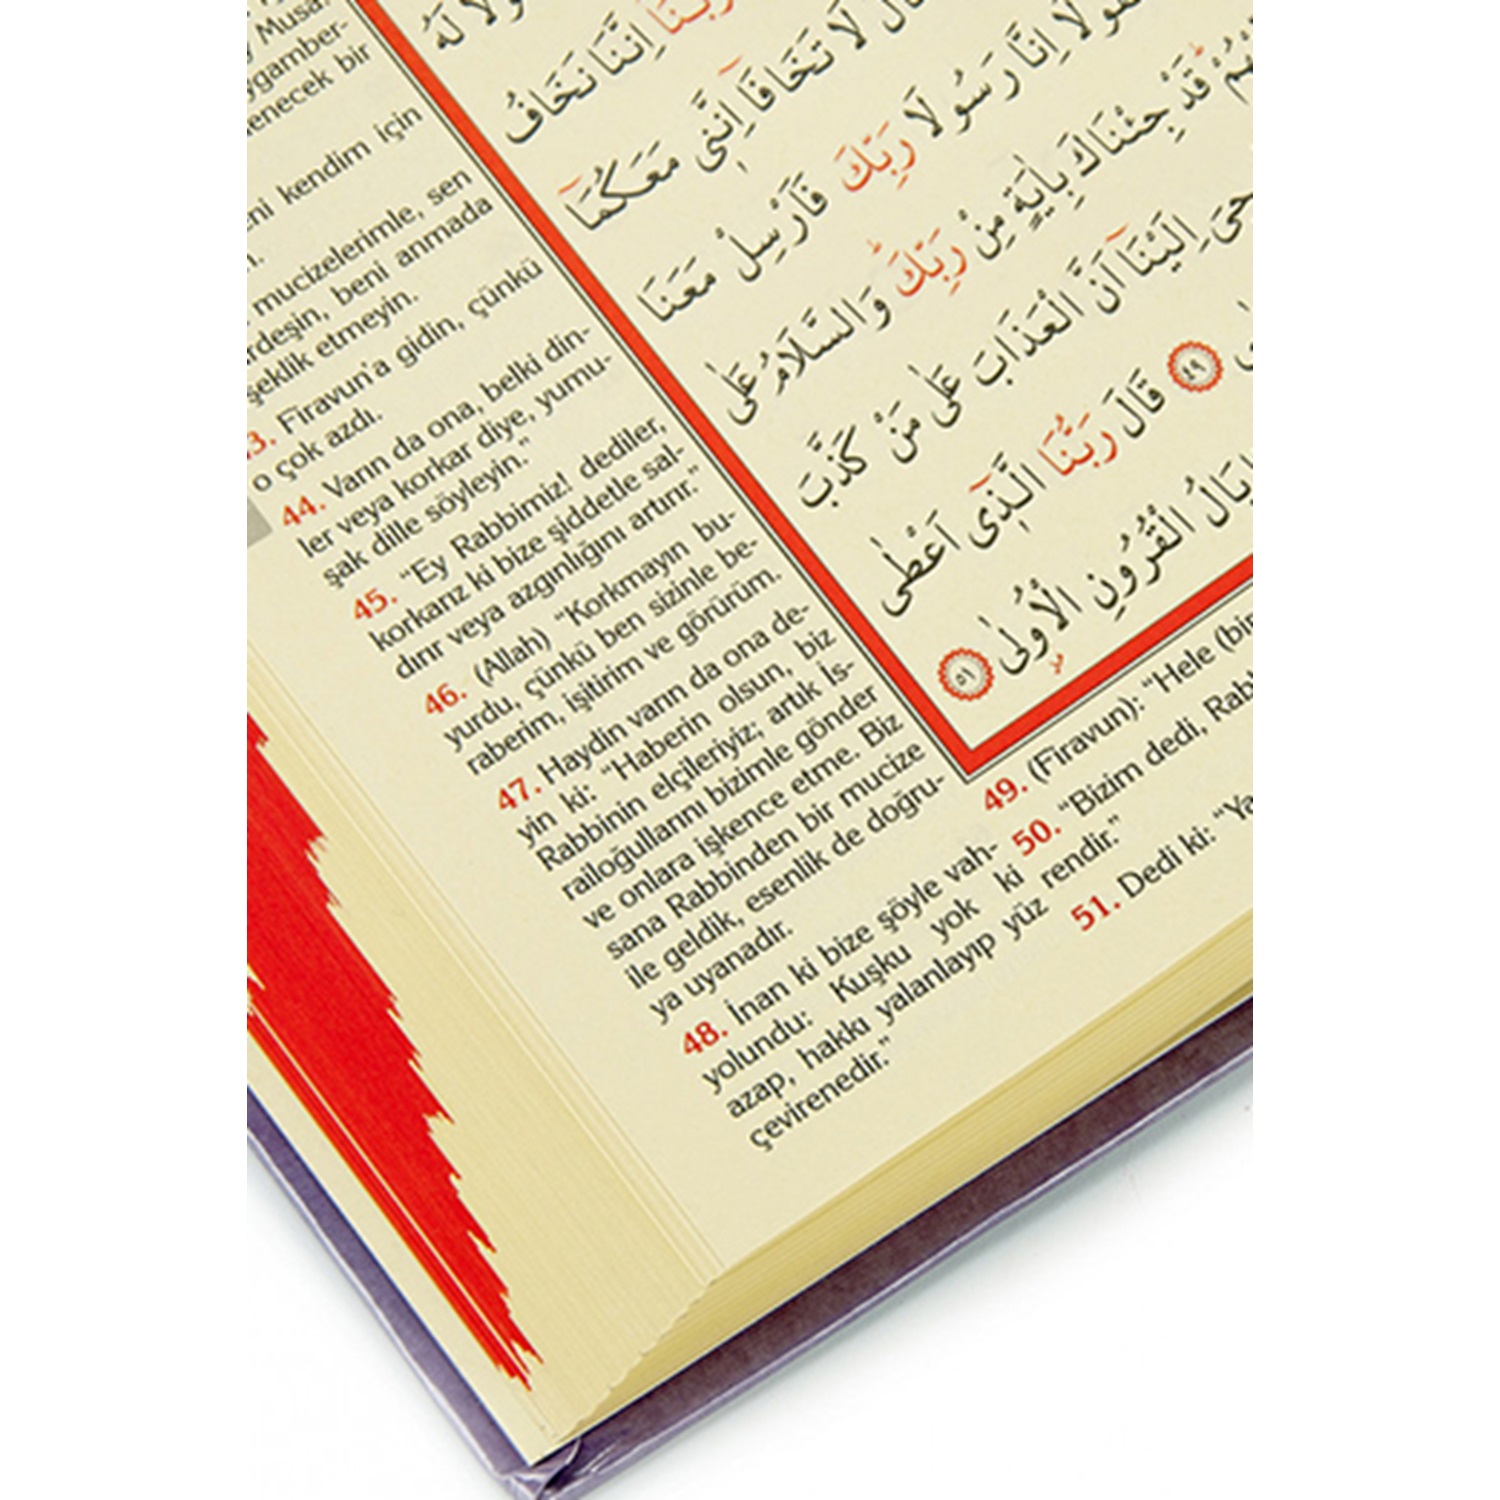 Musa!
ygamber-
enecek bir
eni kendim için
mucizelerimle, sen
rdeşin, beni anmada
şeklik etmeyin.
3. Firavun'a gidin, çünkü
o çok azdı.
44. Varın da ona, belki din-
ler veya korkar diye, yumu-
şak dille söyleyin."
45. "Ey Rabbimiz! dediler,
korkarız ki bize şiddetle sal-
dırır veya azgınlığını artırır."
46. (Allah) "Korkmayın bu-
yurdu, çünkü ben sizinle be-
raberim, işitirim ve görürüm.
47. Haydin varın da ona de-
yin ki: "Haberin olsun, biz
Rabbinin elçileriyiz; artık İs-
railoğullarını bizimle gönder
ve onlara işkence etme. Biz
sana Rabbinden bir mucize
ile geldik, esenlik de doğru-
ya uyanadır.
48. İnan ki bize şöyle vah-
yolundu: Kuşku yok ki
azap, hakkı yalanlayıp yüz
çevirenedir."
لَهُ
رَبَّنَا اِنَّنَا نَخَافُ
لَا تَخَافَا اِنَّنِى مَعَكُمَا
اِنَّا رَسُولَا رَبِّكَ فَاَرْسِلْ مَعَنَا
قَدْ جِئْنَاكَ بِاٰيَةٍ مِنْ رَبِّكَ وَالسَّلَامُ عَلٰى
اِلَيْنَا اَنَّ الْعَذَابَ عَلٰى مَنْ كَذَّبَ
٤٩ قَالَ رَبُّنَا الَّذِى اَعْطٰى
بَالُ الْقُرُونِ الْاُولٰى ٥١
49. (Firavun): "Hele (bir
50. "Bizim dedi, Rab
rendir."
51. Dedi ki: "Ya